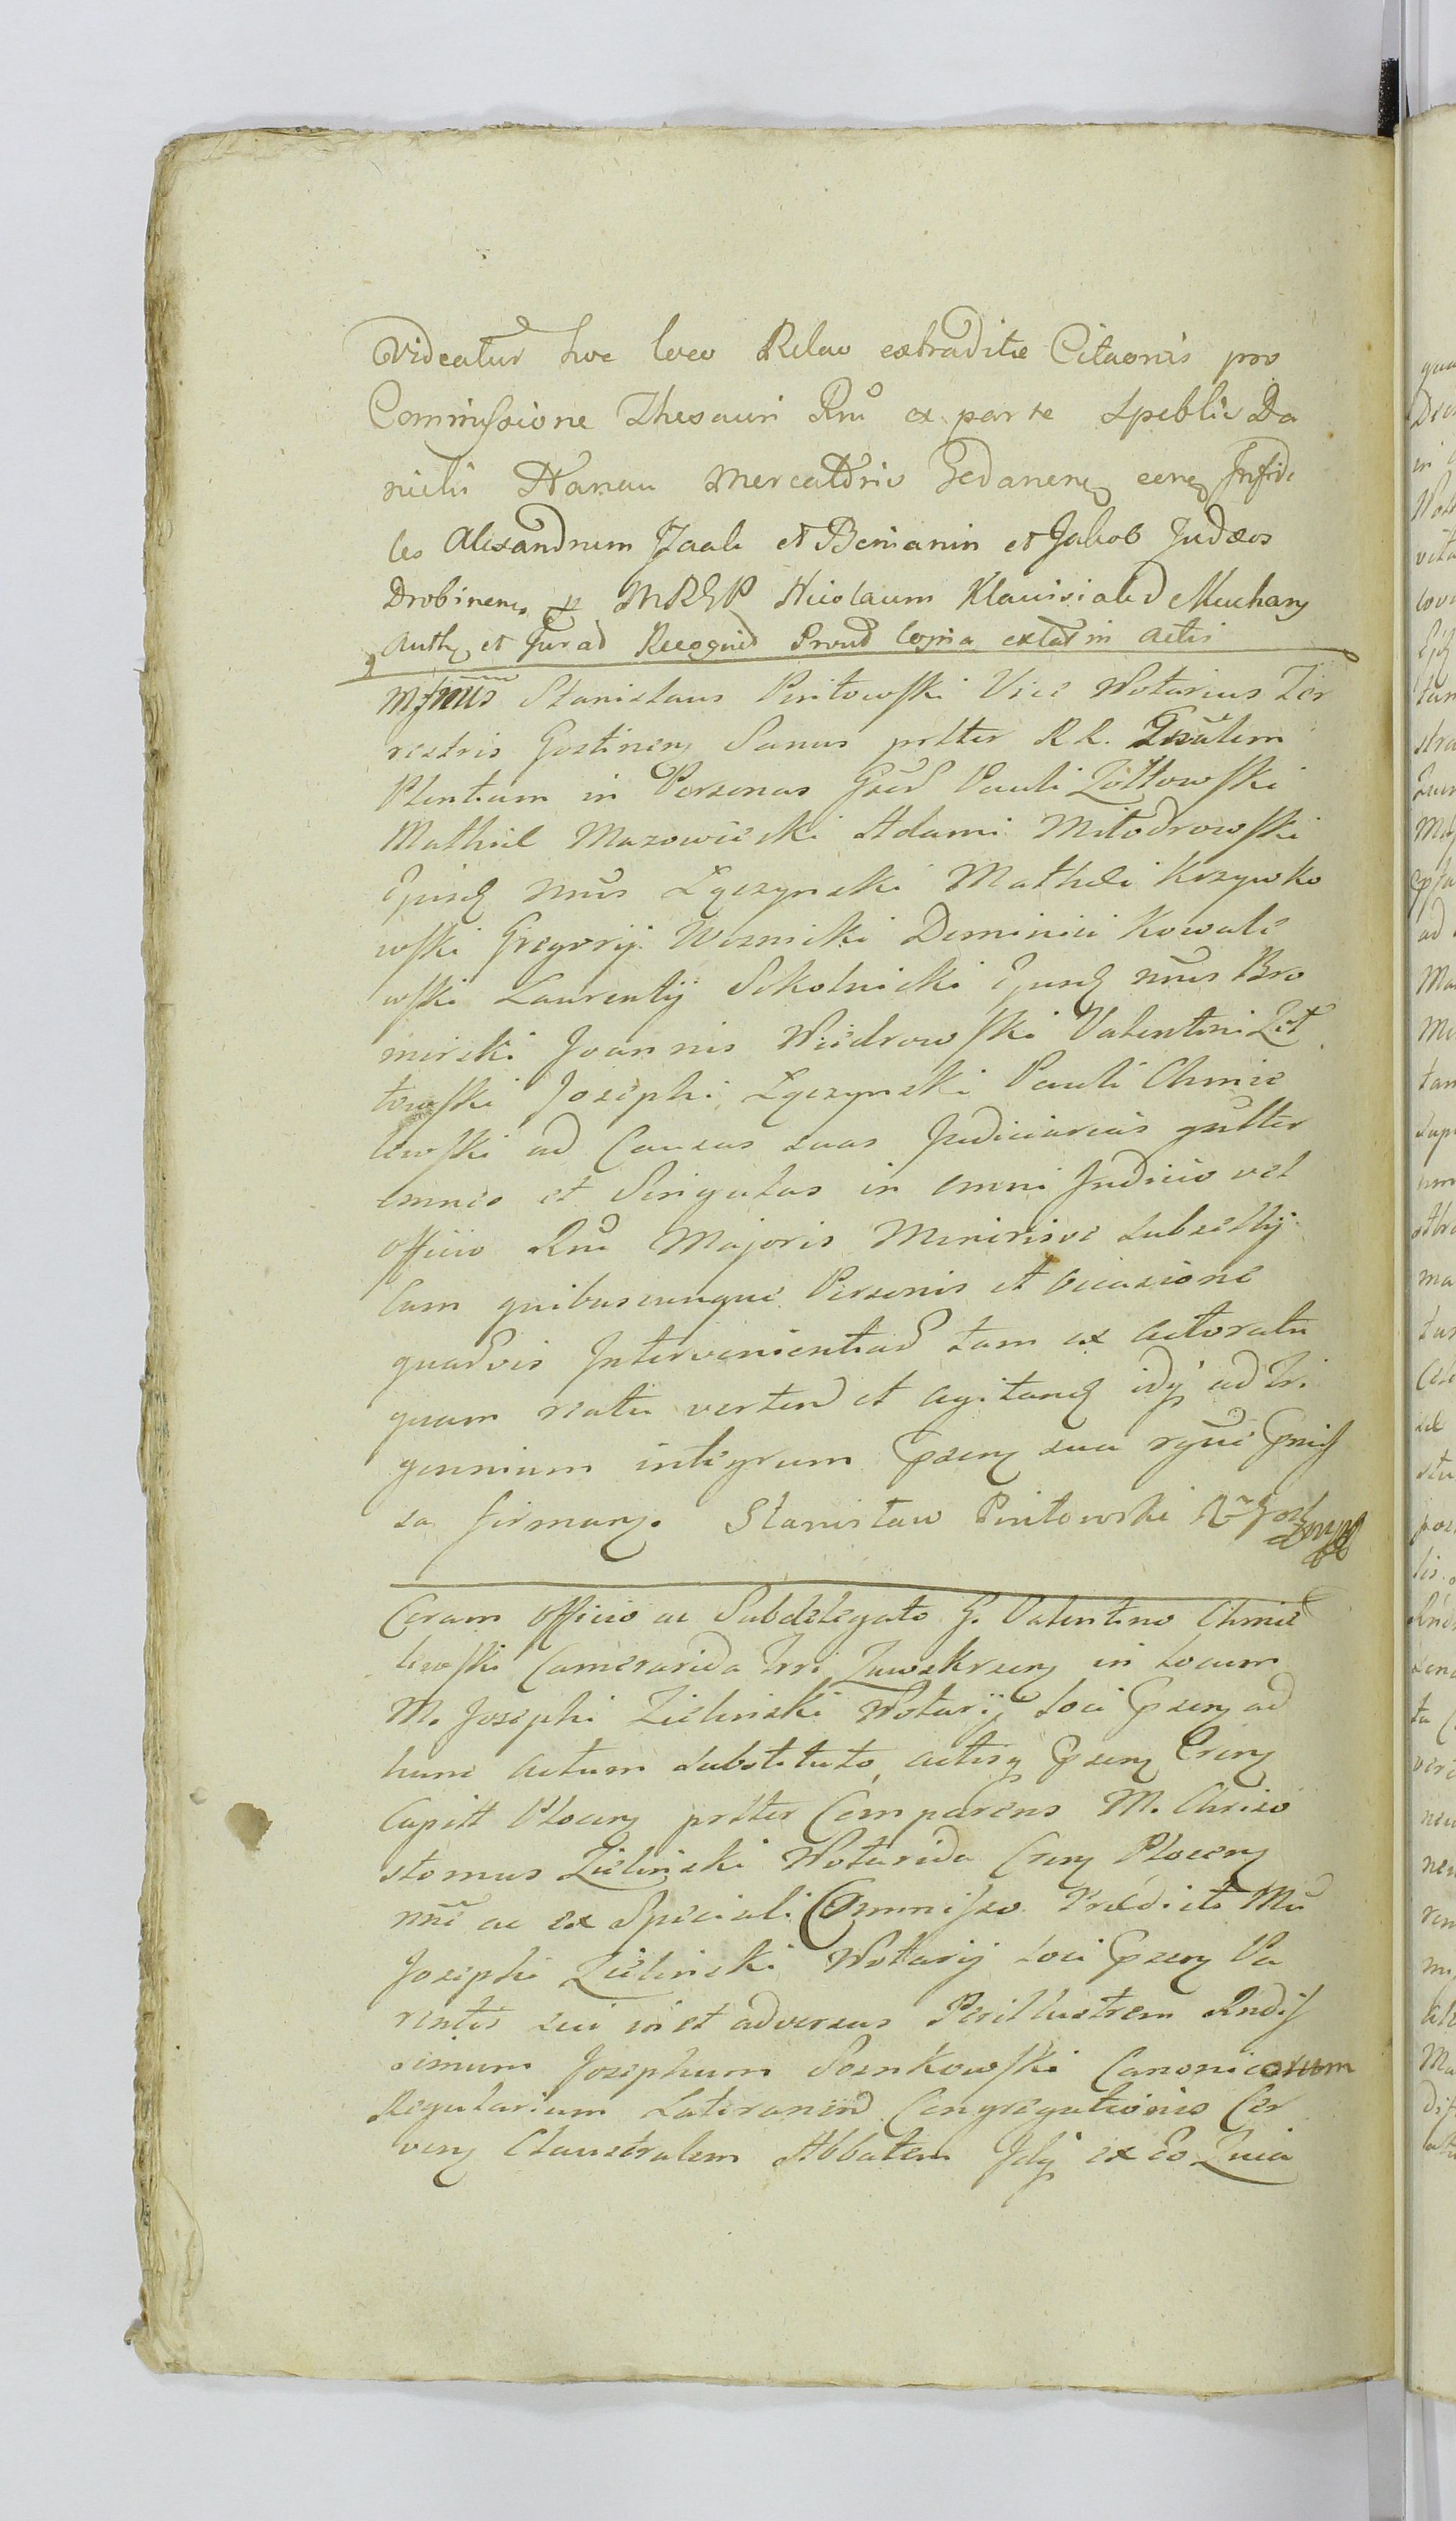 Videatur hoc loco Relao extraditæ Citaonis pro
Commissione Thesauri Rni ex parte Spebliv Da
nielis Hanau Mercatoris Gedanens eens Infide
les Alexandrum Jzaak et Beniamin et Jakob Judæos
Drobinens p MRGP Nicolaum Klauisialed Muchany
Auth et Jurad Recognid Proud Copia extat in Actis
Mfnus Stanislaus Piwłowski Vice Notarius Ter
restris Gostinens Sanus prltter RR. Gnalem
Plentiam in Personas Gsed Pauli Żółtowski
Mathiæ Mazowiecki Adami Miłodrowski
Ejusd nnis Łączynski Mathæi Krzywko
wski Gregorij Woznicki Dominici Kowale
wski Laurentij Sokolnicki Ejusd nnis Bro
mirski Joannis Wiedrowski Valentini Żół
towski Josephi Łączynski Pauli Chmie
lewski ad Causas suas Judiciarias gnltter
omnes et Singulas in omni Judicio vel
Officio Rni Majoris Minirisve Subsellij
Cum quibuscunque Personis et occasione
quavis Intervenientiad tam ex actoratu
quam reatu vertend et agitand idq ad Tri
gennium integrum Præsens sua rgne Præmis
sa firmans. Stanisław Piwtowski
Coram Officio ac Subdelegato G. Valentino Chmie
lewski Camerarida Trri Zawskrzens in Locum
M. Josephi Zielinski Notarij Loci Præsens ad
hunc actum substituto, actisq Præsens Crens
Capitt Plocens prltter Comparens M. Chrizo
stomus Zielinski Notarida Crens Plocens
nne ac ex Speciali Commisso Prædicti Mci
Josephi Zielinski Notarij Loci Præsens Pa
rentis sui in et adversus Perillustrem Rndis
simum Josephum Sosnkowski Canonicorum
Regularium Lateranend Congregationis Cer
vens Claustralem Abbatem Idq ex eo Quia